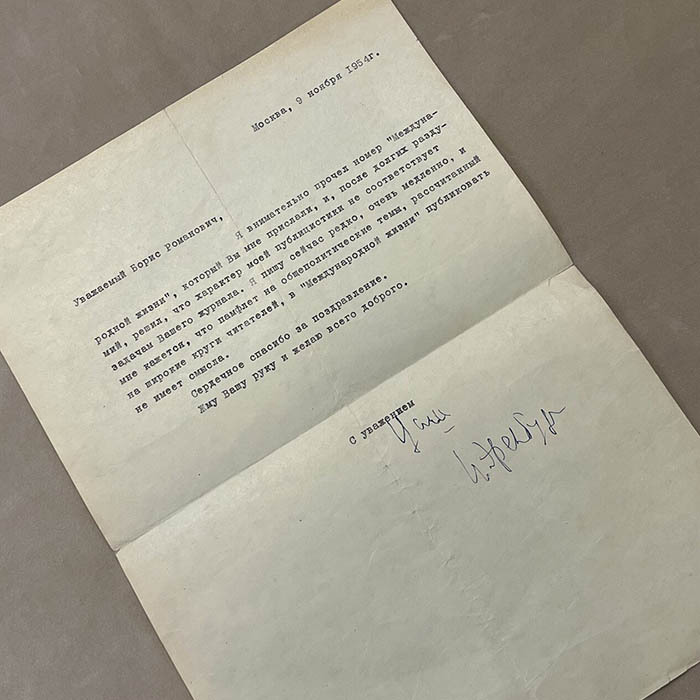 Москва, 9 ноября 1954г.
Уважаемый Борис Романович,
Я внимательно прочел номер "Междуна-
родной жизни", который Вы мне прислали, и, после долгих разду-
мий, решил, что характер моей публицистики не соответствует
задачам Вашего журнала. Я пишу сейчас редко, очень медленно, и
мне кажется, что памфлет на общеполитические темы, рассчитанный
на широкие круги читателей, в "Международной жизни" публиковать
не имеет смысла.
Сердечное спасибо за поздравление.
Жму Вашу руку и желаю всего доброго.
С уважением
И. Эренбург